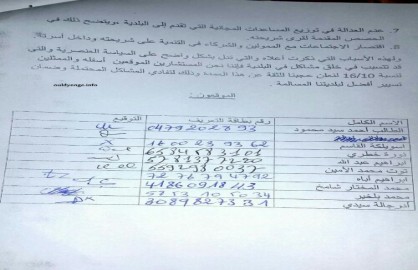 7. عدم العدالة في توزيع المساعدات المجانية التي تقدم إلى البلدية ويتضح ذلك في
الحصص المقدمة لقرى شريحته.
8. اقتصار الاجتماعات مع الممولين والشركاء في التنمية على شريحته وداخل أسرته
ولهذه الأسباب التي ذكرت أعلاه والتي تدل بشكل واضح على السياسة العنصرية والتي
قد تتسبب في خلق مشاكل في البلدية فإننا نحن المستشارين الموقعين أسفله والممثلين
نسبة 16/10 نعلن سحبنا للثقة من هذا العمدة وذلك لتفادي المشاكل المحتملة وضمان
تسيير أفضل لبلديتنا المسالمة.
aouldyenge.info
الموقعون:
الاسم الكامل رقم بطاقة التعريف التوقيع
الطالب أحمد سيد محمود 0479202893
اسويلكة القاسم 1700239362
زورة خطري 6534583101
ابراهيم عبد الله 5783377280
توت محمد الأمين 6592980037
ابراهيم أباه 7276794792
محمد المختار شامخ 4186091843
محمد بلخير 5753105034
أدرجالة سيدي 8089827331